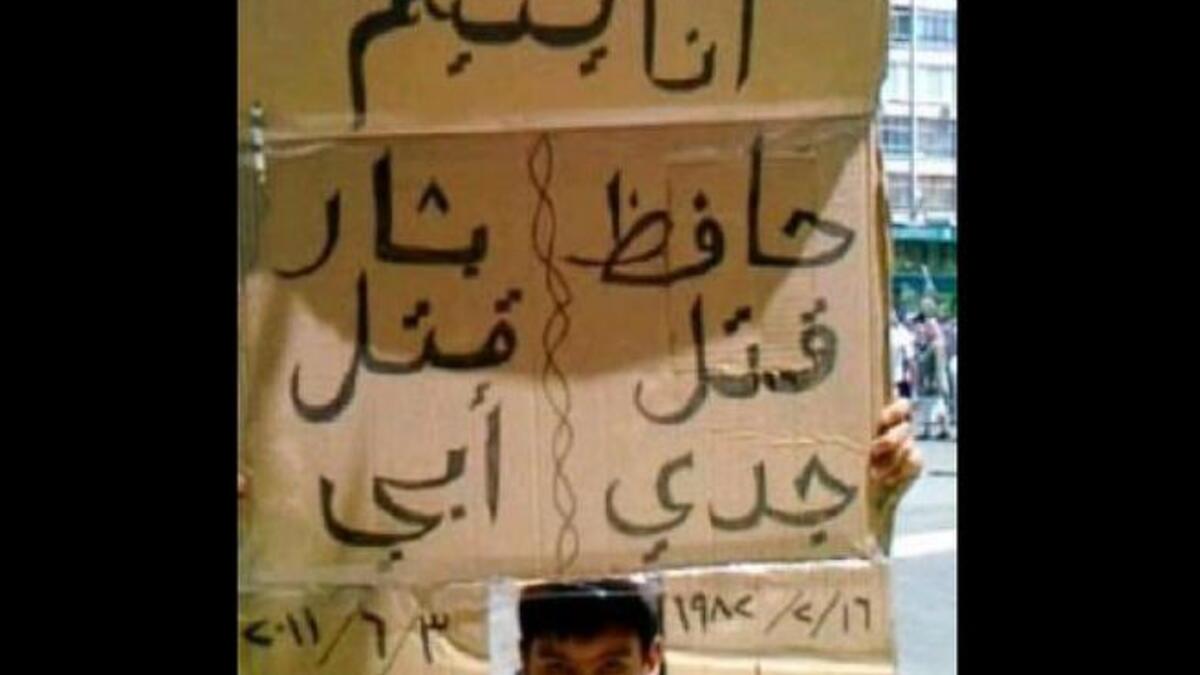 انا يتيم
حافظ
قتل
جدي
١٩٨٢/٢/١٦
بشار
قتل
أبي
٢٠١١/٦/٣